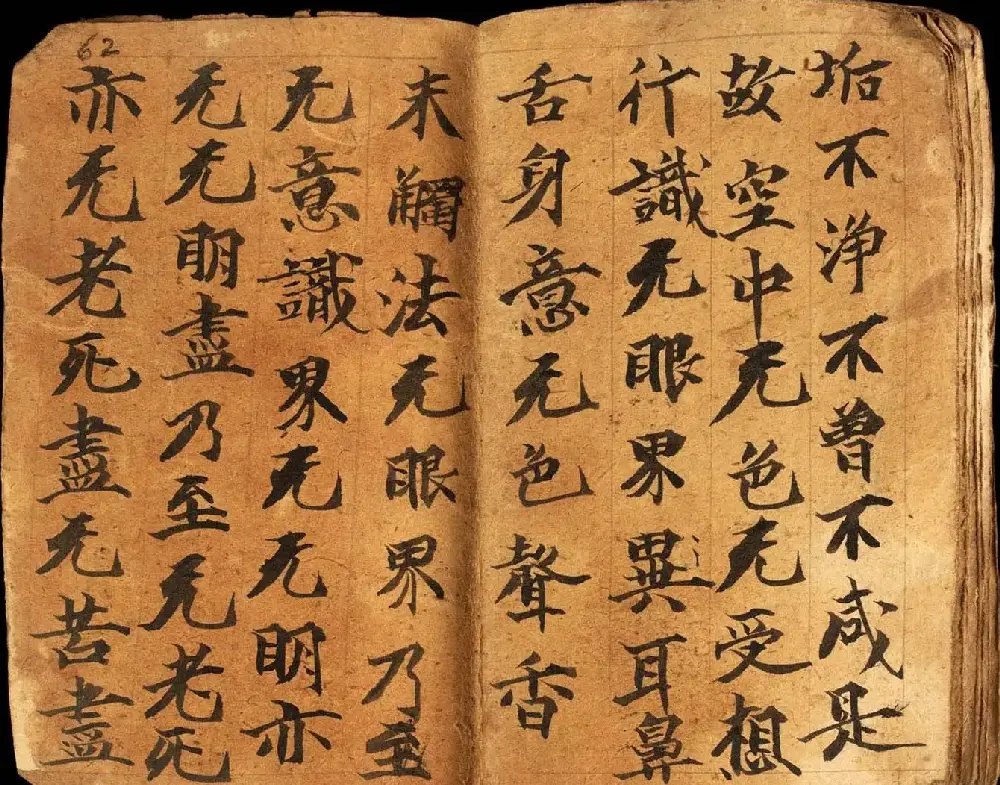 垢不浄不曾不咸是
故空中无色无受想
行識无眼界異耳鼻
舌身意无色聲香
未觸法无眼界乃至
无意識界无无明亦
无无明盡乃至无老死
亦无老死盡无苦盡
62